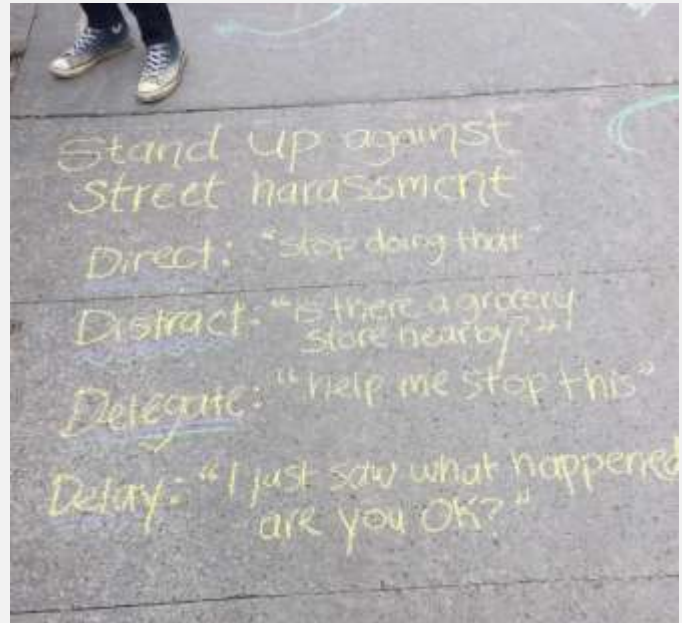 Stand up against
street harassment
Direct: "stop doing that"
Distract: "is there a grocery
store nearby?"
Delegate: "help me stop this"
Delay: "I just saw what happened
are you OK?"